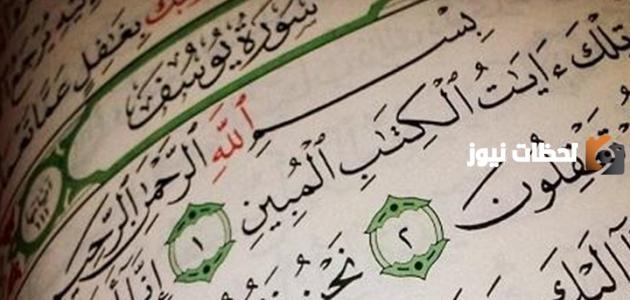 يُرْجَعُ
بِغَٰفِلٍ عَمَّا
سُورَةُ يُوسُفَ
بِسْمِ ٱللَّهِ ٱلرَّحْمَٰنِ ٱلرَّحِيمِ
تِلْكَ ءَايَٰتُ ٱلْكِتَٰبِ ٱلْمُبِينِ ١ إِنَّآ
تَعْقِلُونَ ٢ نَحْنُ
إِلَيْكَ
لحظات نيوز